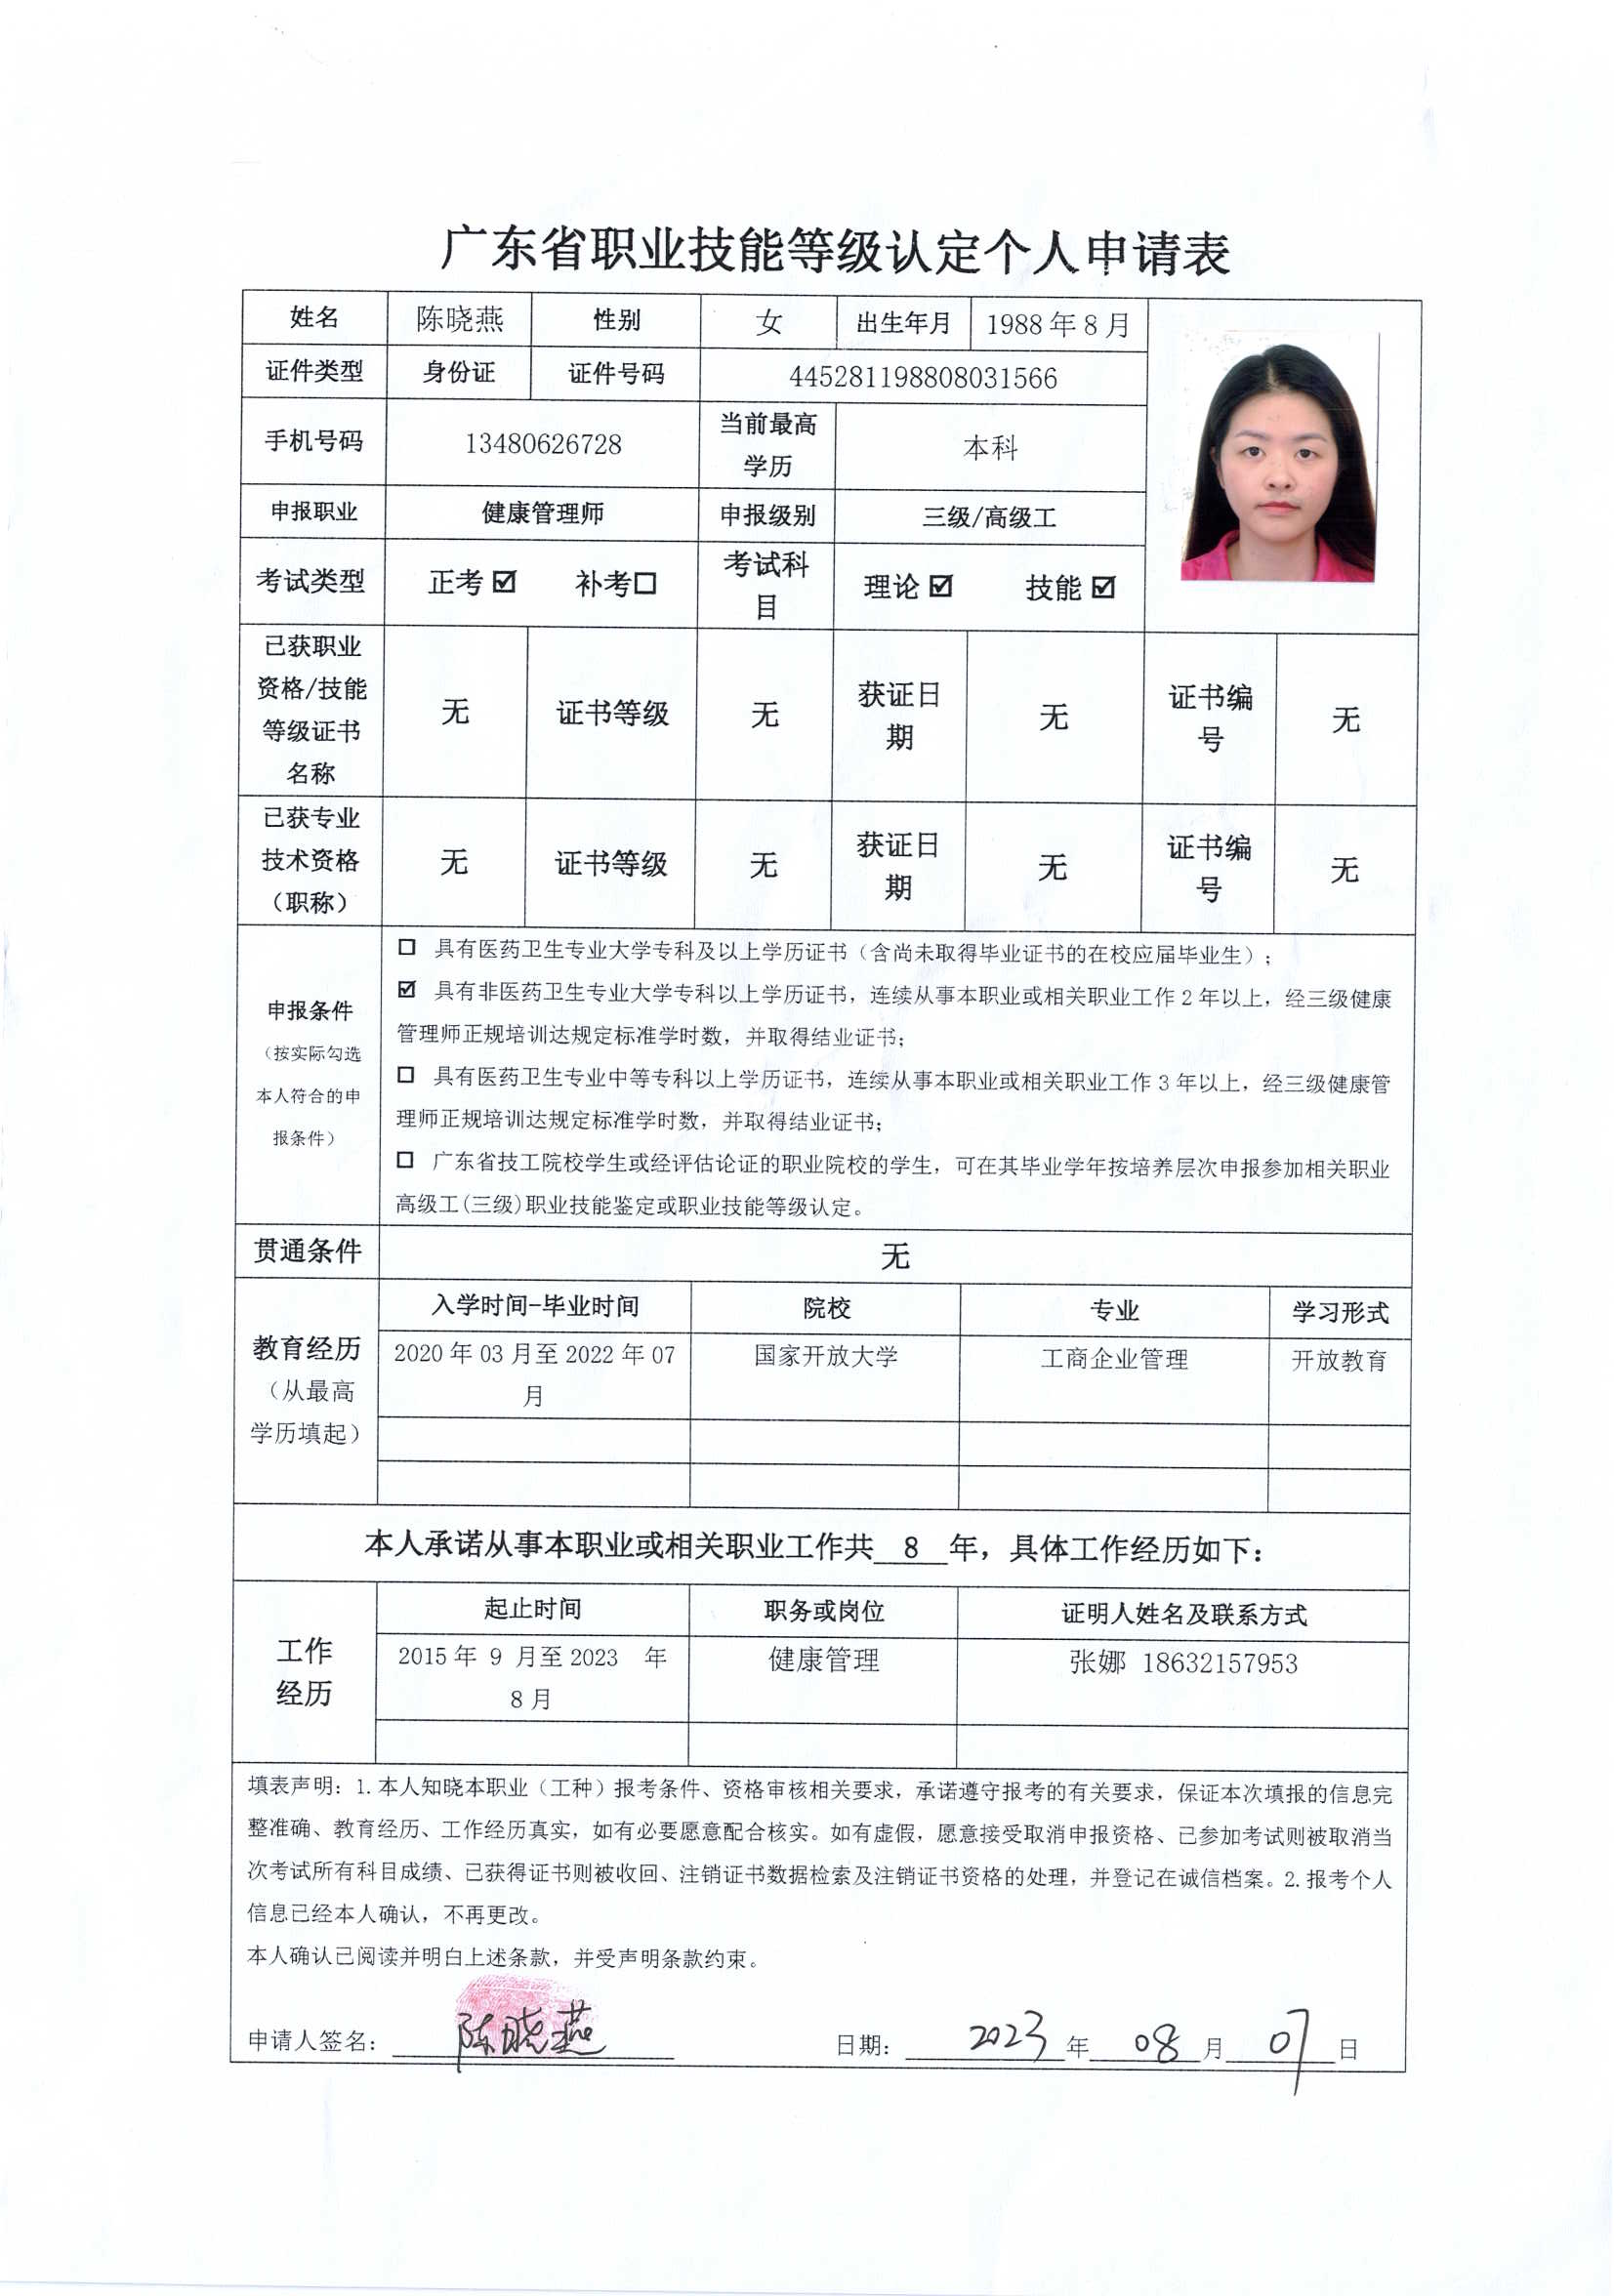 广东省职业技能等级认定个人申请表
姓名 陈晓燕 性别 女 出生年月 1988 年 8 月
证件类型 身份证 证件号码 445281198808031566
手机号码 13480626728 当前最高学历 本科
申报职业 健康管理师 申报级别 三级/高级工
考试类型 正考 ☑ 补考 □ 考试科目 理论 ☑ 技能 ☑
已获职业资格/技能等级证书名称 无 证书等级 无 获证日期 无 证书编号 无
已获专业技术资格（职称） 无 证书等级 无 获证日期 无 证书编号 无
申报条件
（按实际勾选
本人符合的申
报条件）
□ 具有医药卫生专业大学专科及以上学历证书（含尚未取得毕业证书的在校应届毕业生）；
☑ 具有非医药卫生专业大学专科以上学历证书，连续从事本职业或相关职业工作 2 年以上，经三级健康
管理师正规培训达规定标准学时数，并取得结业证书；
□ 具有医药卫生专业中等专科以上学历证书，连续从事本职业或相关职业工作 3 年以上，经三级健康管
理师正规培训达规定标准学时数，并取得结业证书；
□ 广东省技工院校学生或经评估论证的职业院校的学生，可在其毕业学年按培养层次申报参加相关职业
高级工(三级)职业技能鉴定或职业技能等级认定。
贯通条件 无
教育经历
（从最高
学历填起）
入学时间-毕业时间 院校 专业 学习形式
2020 年 03 月至 2022 年 07 月 国家开放大学 工商企业管理 开放教育
本人承诺从事本职业或相关职业工作共 8 年，具体工作经历如下：
工作
经历
起止时间 职务或岗位 证明人姓名及联系方式
2015 年 9 月至 2023 年 8 月 健康管理 张娜 18632157953
填表声明：1.本人知晓本职业（工种）报考条件、资格审核相关要求，承诺遵守报考的有关要求，保证本次填报的信息完
整准确、教育经历、工作经历真实，如有必要愿意配合核实。如有虚假，愿意接受取消申报资格、已参加考试则被取消当
次考试所有科目成绩、已获得证书则被收回、注销证书数据检索及注销证书资格的处理，并登记在诚信档案。2.报考个人
信息已经本人确认，不再更改。
本人确认已阅读并明白上述条款，并受声明条款约束。
申请人签名：陈晓燕 日期：2023 年 08 月 07 日